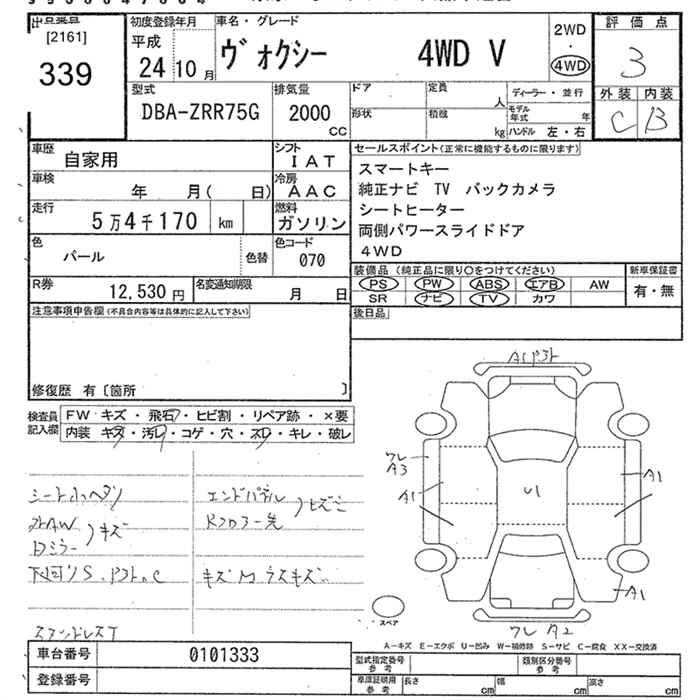 出品業品
[2161]
339
初度登録年月
平成
24 10 月
車名・グレード
ヴォクシー 4WD V
2WD
・
4WD
評価点
3
外装 内装
C B
型式
DBA-ZRR75G
排気量
2000
cc
ドア
形状
定員
人
積載
kg
ディーラー・並行
モデル年式 年
ハンドル 左・右
車歴
自家用
シフト
IAT
車検
年 月( 日)
冷房
AAC
走行
5万4千170 km
燃料
ガソリン
色
パール
色替
色コード
070
R券
12,530 円
名変通知期限
月 日
セールスポイント(正常に機能するものに限ります)
スマートキー
純正ナビ TV バックカメラ
シートヒーター
両側パワースライドドア
4WD
装備品 (純正品に限り〇をつけてください)
PS PW ABS エアB AW
SR ナビ TV カワ
新車保証書
有・無
後日品
注意事項申告欄(不具合内容等は具体的に記入して下さい)
修復歴 有〔箇所 〕
検査員記入欄
FW キズ・飛石・ヒビ割・リペア跡・×要
内装 キズ・汚レ・コゲ・穴・スレ・キレ・破レ
シート小ヘタリ
外AW
Dミラー
キズ
下回りS
エンドパネル
Rフロアー先
ヒズミ
A1
ワレ
A3
A1
U1
A1
A1
ワレ A2
スペア
A-キズ E-エクボ U-凹み W-補修跡 S-サビ C-腐食 XX-交換済
車台番号
0101333
登録番号
型式指定番号
参考
類別区分番号
参考
車庫証明用
参考
長さ cm
幅 cm
高さ cm